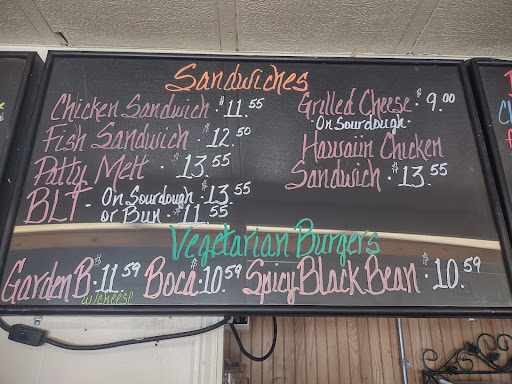 Sandwiches
Chicken Sandwich · $11.55
Fish Sandwich · $12.50
Patty Melt · $13.55
BLT - On Sourdough · $13.55
or Bun · $11.55
Grilled Cheese · $9.00
· On Sourdough ·
Hawaiin Chicken
Sandwich · $13.55
Vegetarian Burgers
Garden B · $11.59
w/cheese
Boca · $10.59
Spicy Black Bean · $10.59